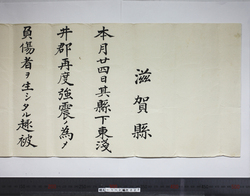 滋賀縣
本月廿四日其縣下東淺
井郡再度強震ノ為メ
負傷者ヲ生シタル趣被